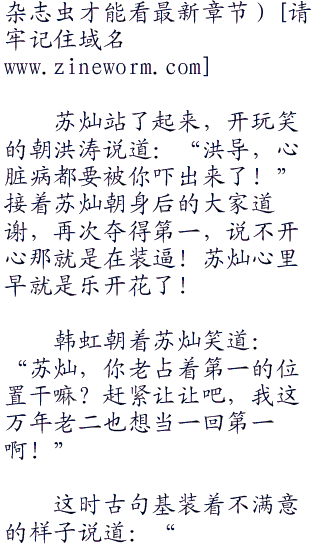 杂志虫才能看最新章节）[请
牢记住域名
www.zineworm.com]
苏灿站了起来，开玩笑
的朝洪涛说道：“洪导，心
脏病都要被你吓出来了！”
接着苏灿朝身后的大家道
谢，再次夺得第一，说不开
心那就是在装逼！苏灿心里
早就是乐开花了！
韩虹朝着苏灿笑道：
“苏灿，你老占着第一的位
置干嘛？赶紧让让吧，我这
万年老二也想当一回第一
啊！”
这时古句基装着不满意
的样子说道：“